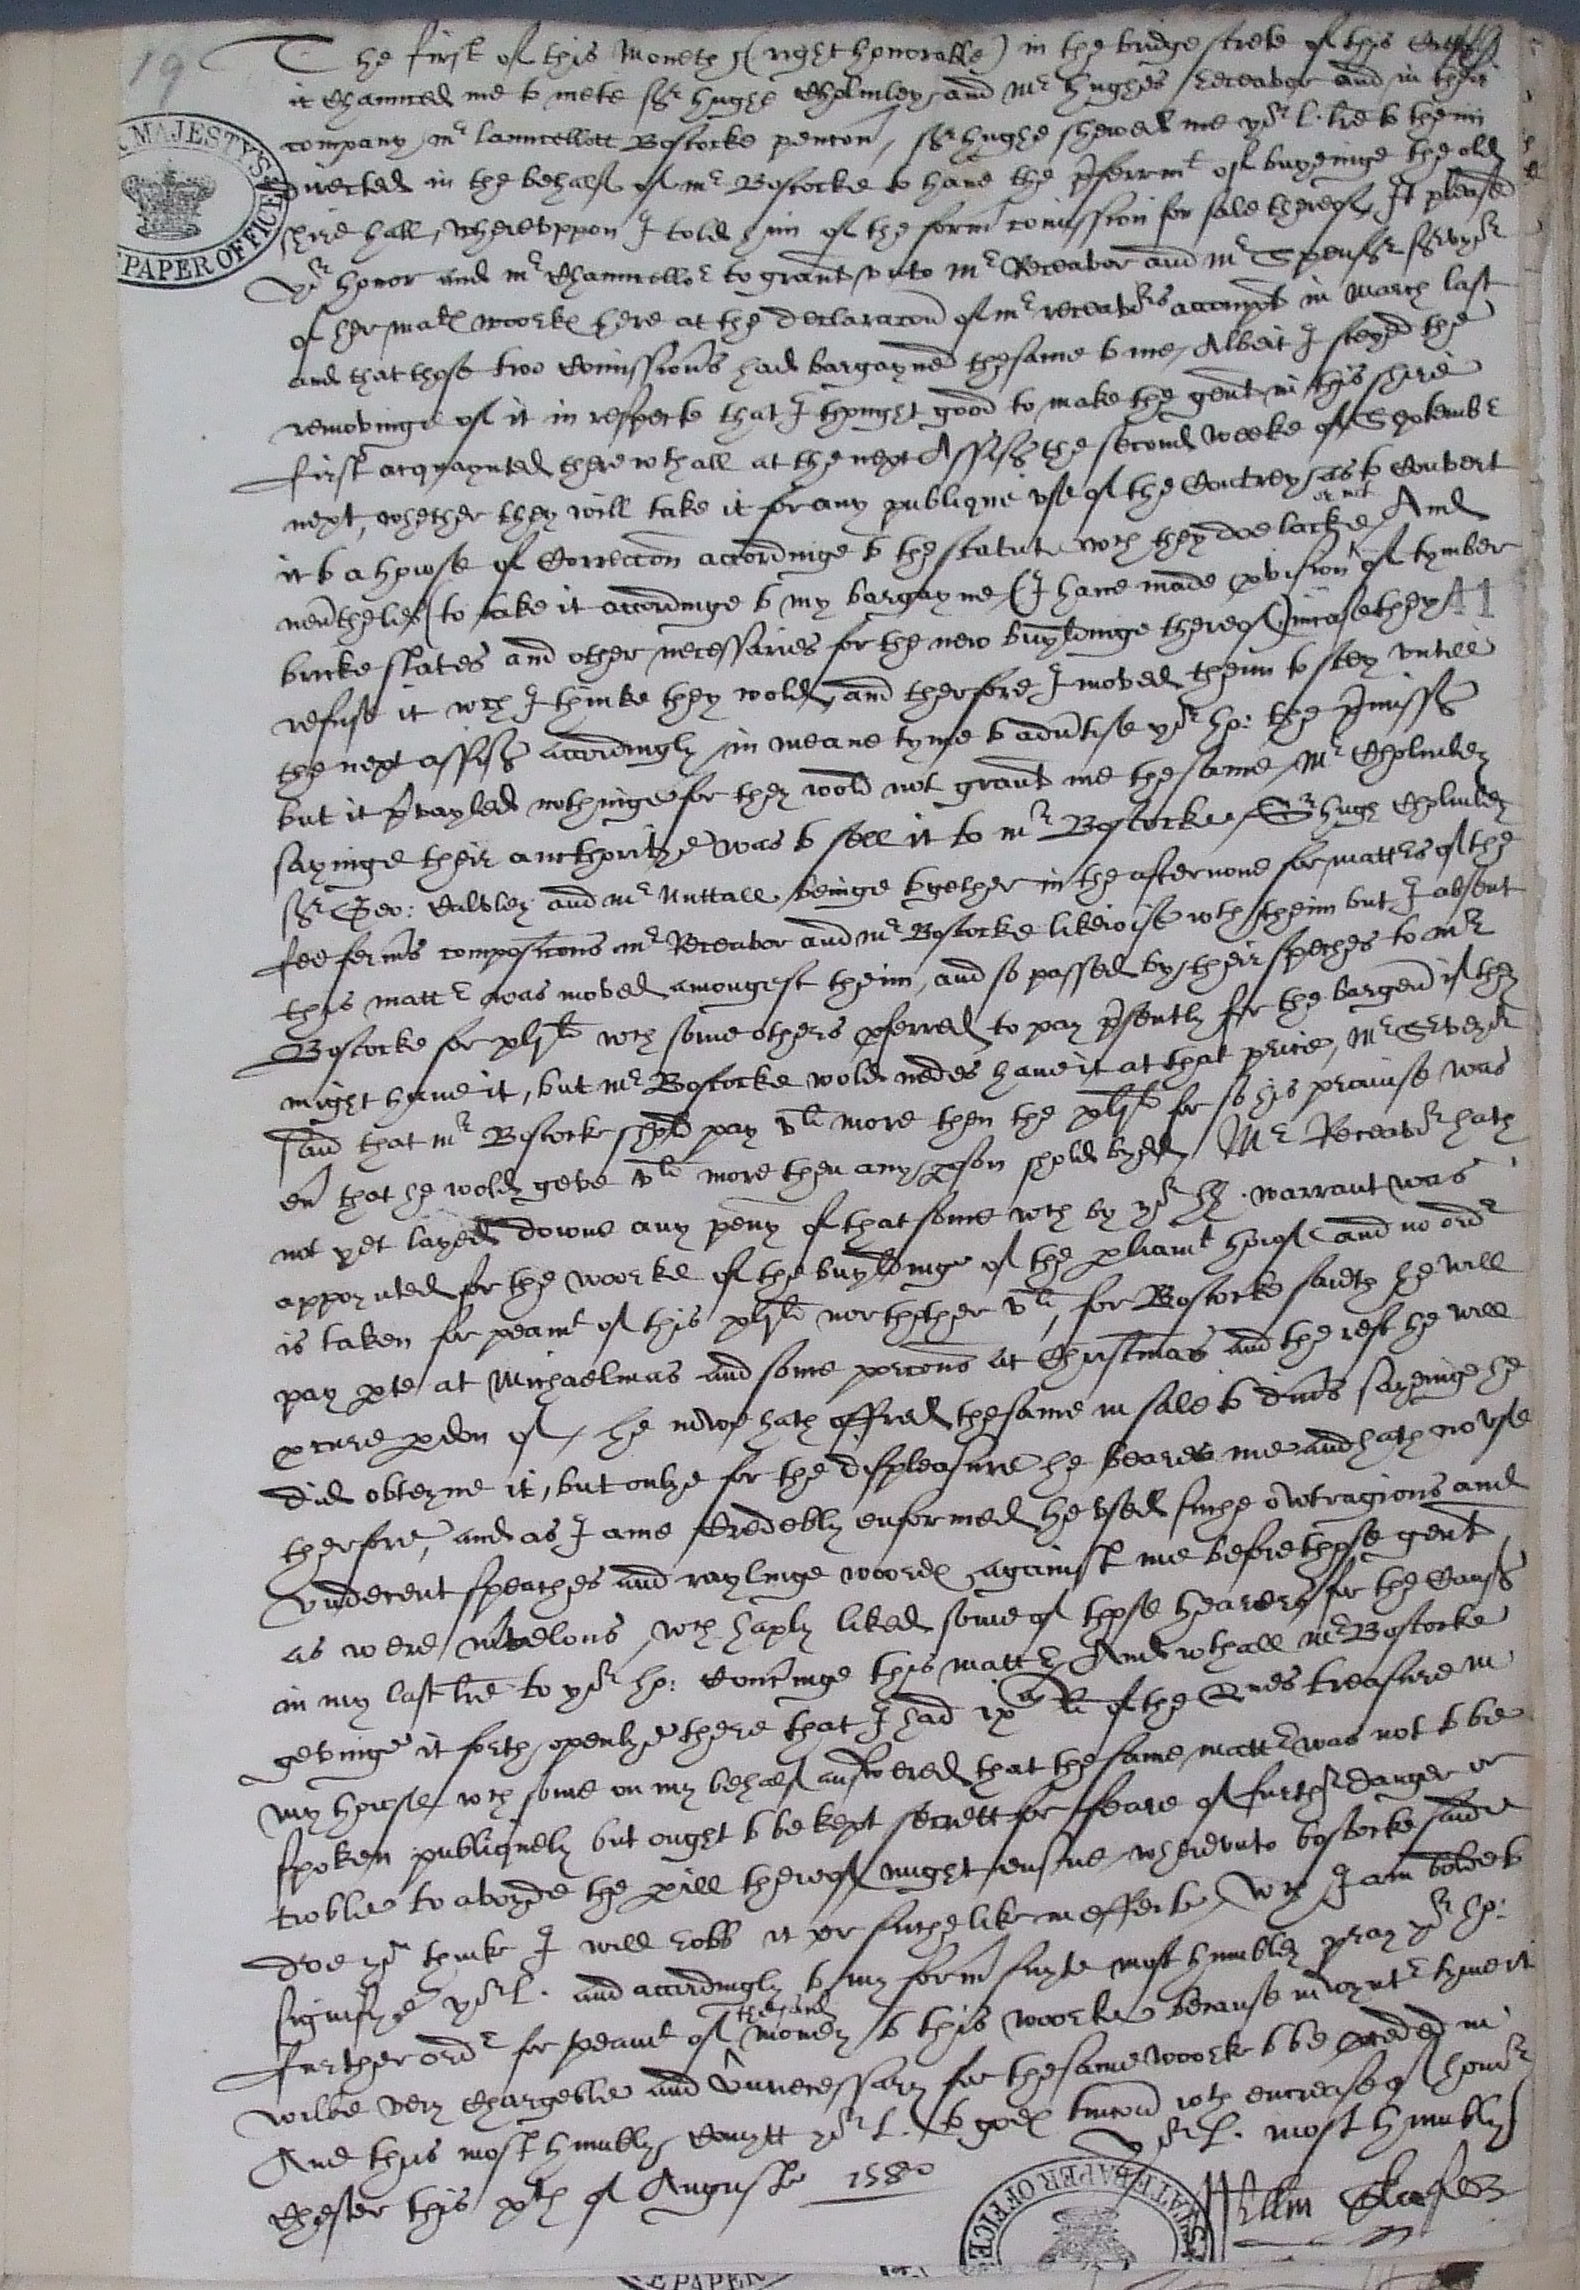 19
The first of this Moneth (right honorable) in the bridge strete of this Cittie
it Chaunced me to mete Sr hughe Cholmley and Mr hughes receavor and in their
company mr launcellott Bostocke pencon, Sr hughe shewed me yor l. lre to them
directed in the behalf of mr Bostocke to have the pferrmt of buyeinge the old
shire hall, whereuppon I told him of the form comission for sale thereof, It pleased
Yor honor and mr Chauncellor to graunt unto Mr Receavor and Mr Spenser Srvyor
of her mats woorks here at the declaracon of mr receavors accompt in March last
and that those two Comissions had bargayned the same to me, Albeit I steyed the
removinge of it in respecte that I thought good to make the gent in this shire
first acquaynted therewthall at the next Assises the second weeke of Septembr
next, whether they will take it for any publique use of the Contrey, as to Convert
it to a howse of Correccon accordinge to the statut wch they doe lacke or not And
nevthelies (to take it accordinge to my bargayne) (I have made pvision of tymber
bricke slates and other necessaries for the new buyldinge thereof) incase they 41
refuse it wch I thinke they wold, and therfore I moved them to stey untill
the next assises accordingly in meane tyme to advtise yor ho: the pmisses
but it pvayled nothinge for they wold not graunt me the same, Mr Cholmley
sayinge their aucthoritye was to sell it to mr Bostocke, Sr hugh Cholmley
Sr Geo: Calveley and mr Nuttall beinge together in the afternone for matters of the
fee ferms composicons mr Receavor and mr Bostocke likewise wth them but I absent
this mattr was moved amongest them, and so passed by their speches to mr
Bostocke for xlli wch some others pferred to pay psently for the bargen if they
might have it, but mr Bostocke wold nedes have it at that price, Mr Srveyor
said that mr Bostocke shold pay vli more then the xlli for so his promise was
that he wold geve vli more then any pson shold byd, Mr Receavor hath
not yet layed downe any peny of that some wch by yor warrant was
appoynted for the woorke of the buyldinge of the pliamt howse and no ordr
is taken for peamt of this xlli nor thother vli, for Bostocke saieth he will
pay pte at Michaelmas and some porcons at Christmas and the rest he will
pcure pdon of, he nowe hath offred the same in sale to divrs sayinge he
did obteyne it, but onlye for the displeasure he beares me and hath no use
therfore, and as I ame Credebly enformed he used suche owtragious and
undecent speaches and raylinge woords against me before those gent
as were mvelous, wch haply liked some of those hearers for the Causes
in my last lre to yor ho: Concninge this mattr, And wthall mr Bostocke
gevinge it forth openlye there that I had ixm li of the Qnes treasure in
my howse, wch some on my behalf answered that the same mattr was not to be
spoken publiquely but ought to be kept secrett for feare of furthr danger or
troble to avoyde the pill thereof might ensue, whereunto bostocke said
doe yo thinke I will robb it or suche like in effecte, wch I am bolde to
signifye yor l. and accordingly to my form suyte most humbley pray yor ho:
further ordr for peamt of the said money to this woorke because in wyntr tyme it
wilbe very Chargeble and unnecessary for the same woork to be pceded in
And thus most humbly Comytt yor l. to gods tuicon wth encrease of honor
Chester this xth of Auguste 1580 Yor l. most humbly
Willm
HER MAJESTY'S STATE PAPER OFFICE
STATE PAPER OFFICE
E PAPER